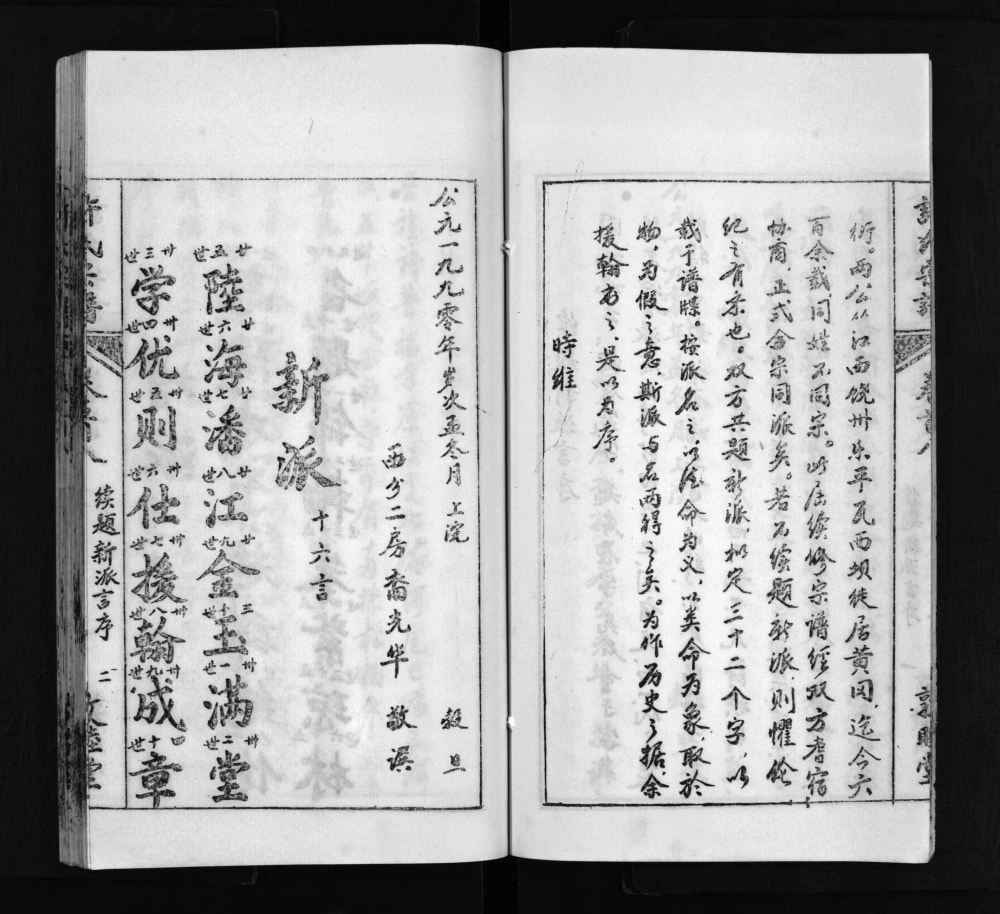 衍。两公从江西饶卅乐平瓦西坝徙居黄冈，迄今六
百余载同姓不同宗。此届续修宗谱经双方耆宿
协商，正式合宗同派矣。若不续题新派，则懼伦
纪之有紊也。双方共题新派，拟定三十二个字，以
载于谱牒。按派名之以德命为义，以类命为象，取於
物，为假之意，斯派与名两得之矣。为作历史之据，余
援翰为之，是以为序。
時维
公元一九九零年岁次孟冬月上浣 穀旦
西分二房裔光华 敬譔
新派 十六言
陸海潘江金玉满堂
廿五世 廿六世 廿七世 廿八世 廿九世 三十世 卅一世 卅二世
学优则仕援翰成章
卅三世 卅四世 卅五世 卅六世 卅七世 卅八世 卅九世 卌世
续题新派言序 二